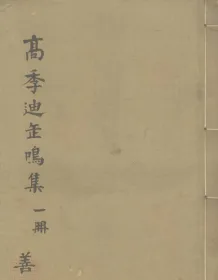 高季迪缶鳴集
一冊
善